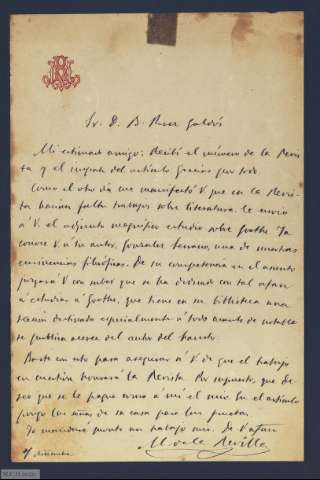 Sr. D. B. Perez Galdós
Mi estimado amigo: Recibí el número de la Revis-
ta y el importe del artículo. Gracias por todo.
Como el otro día me manifestó V. que en la Revis-
ta hacían falta trabajos sobre literatura, le envío
a V. el adjunto magnífico estudio sobre Goethe. Ya
conoce V. a su autor, Gonzalez Serrano, una de nuestras
eminencias filosóficas. De su competencia en el asunto
juzgará V. con saber que se ha dedicado con tal afan
a estudiar a Goethe, que tiene en su biblioteca una
sección destinada especialmente a todo cuanto de notable
se publica acerca del autor del Fausto.
Baste con esto para asegurar a V. de que el trabajo
en cuestión honrará la Revista. Por supuesto, que de-
seo que se le pague como a mí el mio. En el artículo
pongo las señas de su casa para las pruebas.
Yo mandaré pronto un trabajo mio. De V. afmo.
M. de la Revilla